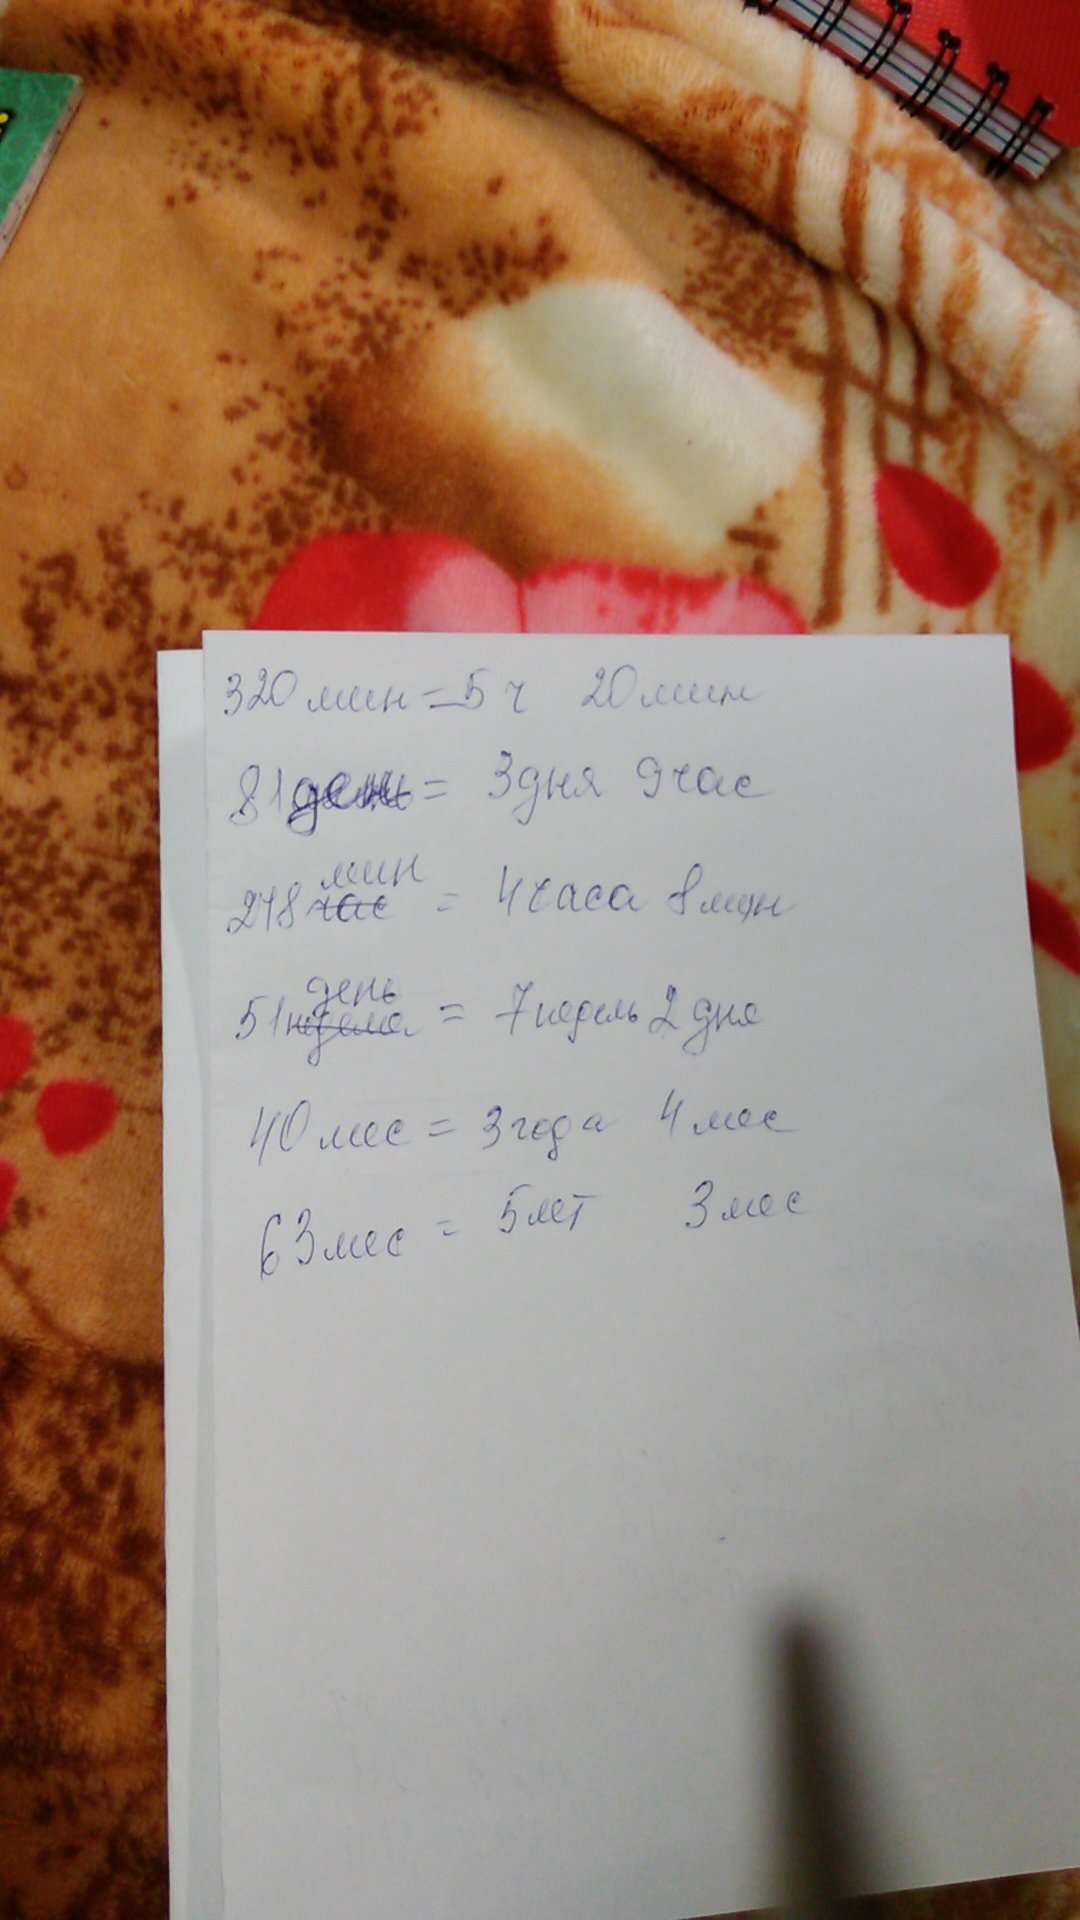 320 мин = 5 ч 20 мин
81 день = 3 дня 9 час
мин
248 час = 4 часа 8 мин
день
51 неделя = 7 недель 2 дня
40 мес = 3 года 4 мес
63 мес = 5 лет 3 мес